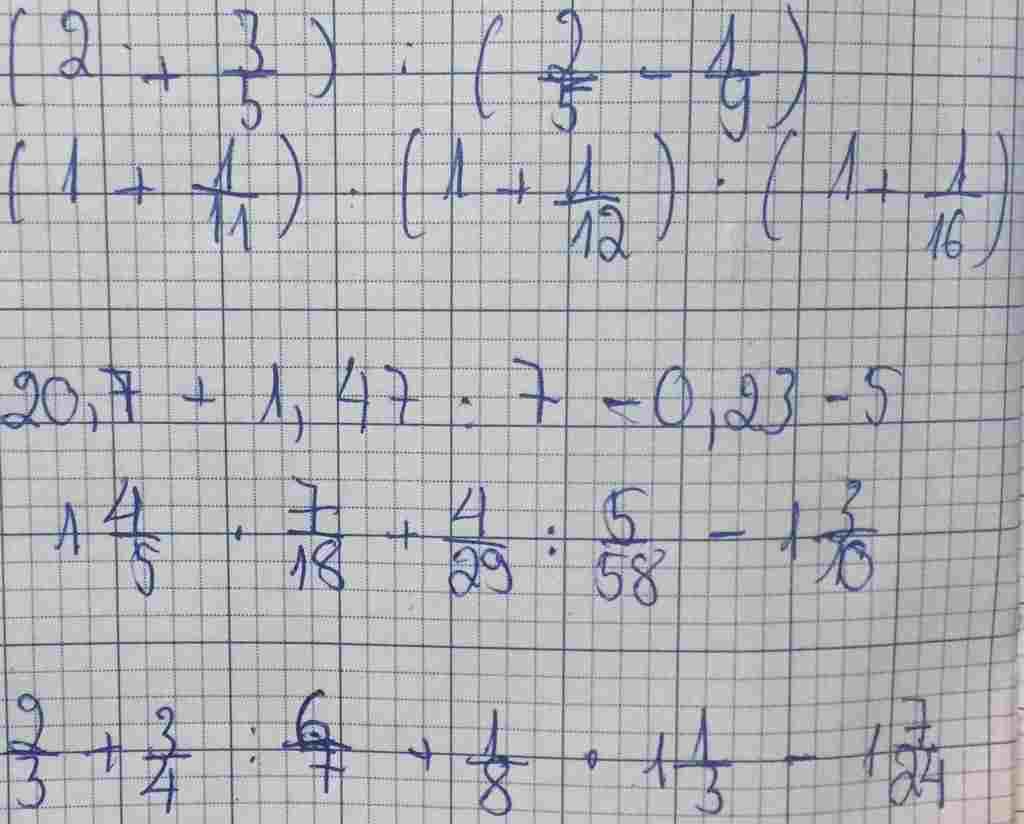 (2 + 3/5) : (2/5 - 1/9)
(1 + 1/11) · (1 + 1/12) · (1 + 1/16)
20,7 + 1,47 : 7 - 0,23 - 5
1 4/5 · 7/18 + 4/29 : 5/58 - 1 3/10
2/3 + 3/4 : 6/7 + 1/8 · 1 1/3 - 1 7/24